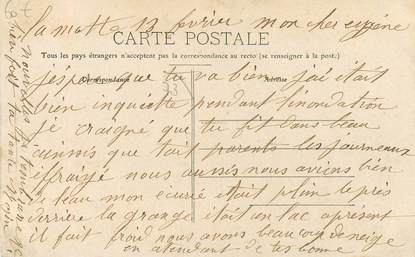 la motte 13 fevrier mon cher eugène
CARTE POSTALE
Tous les pays étrangers n'acceptent pas la correspondance au recto (se renseigner à la poste.)
Correspondance
Adresse
j'éspère que tu va bien j'ai était
bien inquiette pendant l'inondation
je craigné que tu fit dans leau
aussis que tait parents les journeaux
éffrayé nous aussis nous avions bien
de leau mon écurie était plin le près
derrière la grange était en lac apresent
il fait froid nous avons beaucoup de neige
en atendant de tes bonne
nouvelle
33